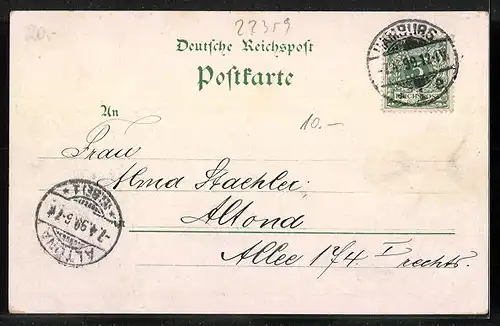 20.-
27359
Deutsche Reichspost
Postkarte
An
10.-
Frau
Alma Staehler.
Altona
Allee 174. I
rechts.
HAMBURG
5
REICHSPOST
ALTONA
-7.4.98. 5-6 N.